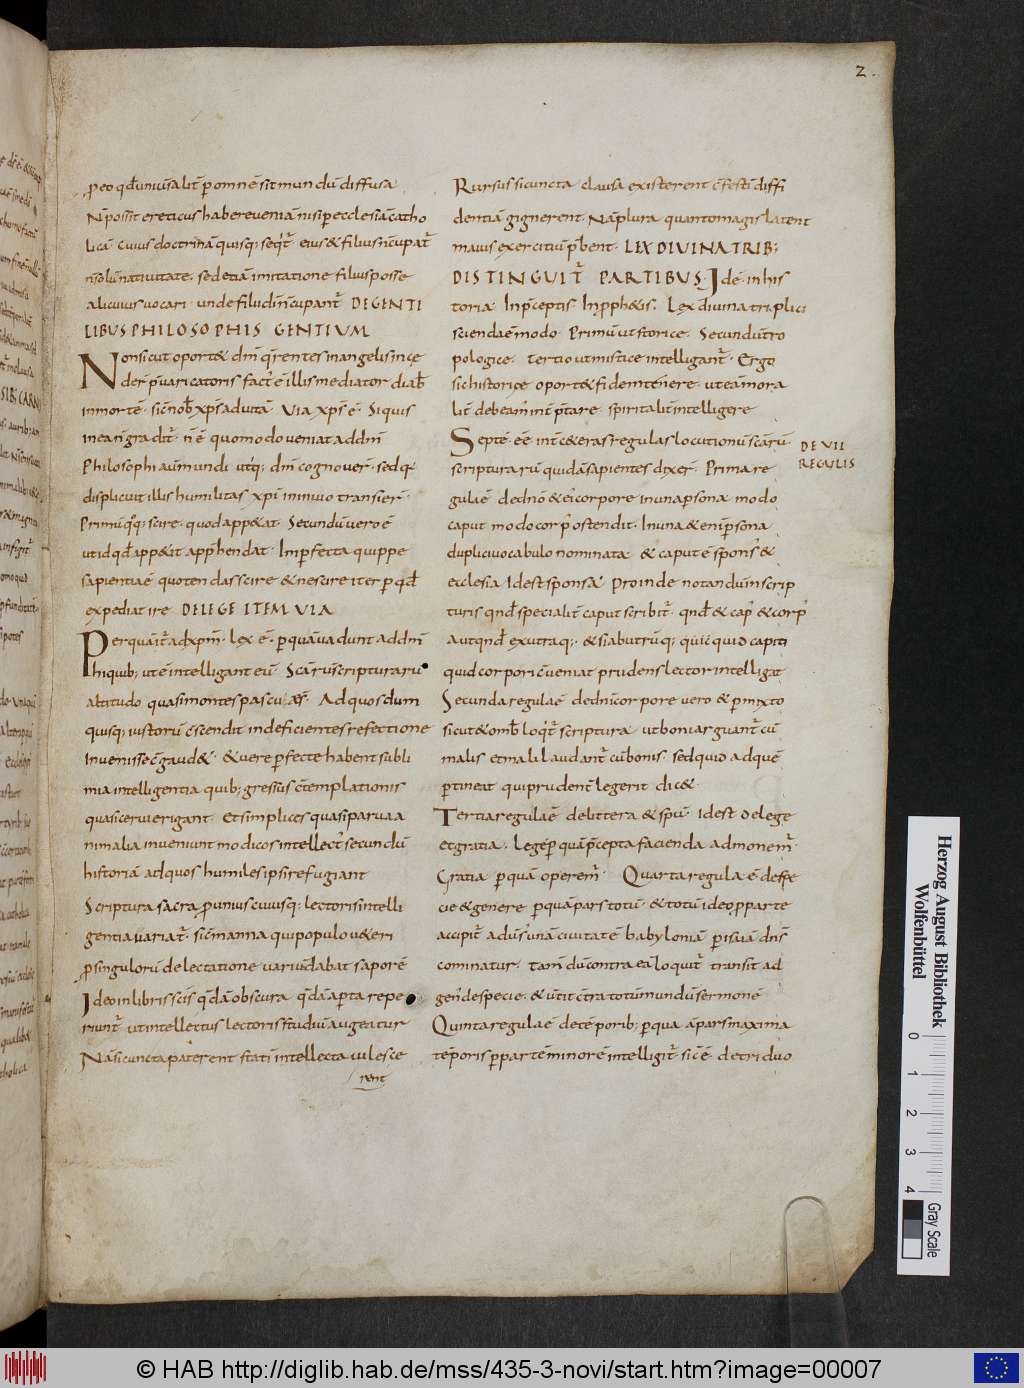 2.
peo qd uniusalit pomne sit mundu diffusa
N possit ereticus habere venia nisi p ecclesia catho
lica cuius doctrina quisq; seqt eius & filius ncupat
n solu nativitate. sed etia imitatione filius posse
alicuius vocari. unde filii di ncupant DE GENTI
LIBUS PHILOSOPHIS GENTIUM
Non sicut oport& dm qrentes in angelis ince
der pvaricatoris fact e illis mediator diab
in morte. sic nob xps ad vita Via xps e. Siquis
in ea n graditt. n e quomodo veniat ad dm
Philosophi aum mundi utiq; dm cognover. sed q
displicuit illis humilitas xpi in invio transier.
Primu qq; scire. quod app&at. Secundu vero e
ut id qd app&it apphendat. Imp fecta quippe
sapientia e quo tendas scire & nescire iter p qd
expediat ire DE LEGE ITEM VIA
Per qua it ad xpm. lex e. p qua vadunt ad dm
hi quib; ut e intelligant eu. Scaru scripturaru
altitudo quasi montes pascuae s. Ad quos dum
quisq; iustoru cscendit indeficientes refectione
invenisse cgaud&. & vere pfecte habent subli
mia intelligentia quib; gressus ctemplationis
quasi cervi erigant. Et simplices quasi parva a
nimalia inveniunt modicos intellect secundu
historia ad quos humiles ipsi refugiant
Scriptura sacra p unius cuiusq; lectoris intelli
gentia variat. sic manna qui populo v&eri
p singuloru delectatione variu dabat sapore
Ideo in libris scis qda obscura qda apta repe
riunt ut intellectus lectoris studiu augeatur
Na si cuncta paterent stati intellecta vilesce
rent
Rursus si cuncta clausa existerent cfesti diffi
dentia gignerent. Na plura quanto magis latent
maius exercitiu pbent. LEX DIVINA TRIB;
DISTINGUIT PARTIBUS Ide. in his
toria In pceptis In pph&is. Lex divina triplici
scienda e modo. Primu ut storice. Secundu tro
pologice. Tertio ut mistice intelligant. Ergo
sic historice oport& fide tenere. ut ea mora
lit debeam int ptare. spiritalit intelligere
Septe. ee int c&eras regulas locutionu scaru
scripturaru quida sapientes dixer. Prima re
gula e de dno & ei corpore in una psona. modo
caput modo corp ostendit. In una & eni psona
duplici vocabulo nominata & caput e spons &
ecclesia Id est sponsa Proinde notandu in scrip
turis qnd specialit caput scribit. qnd & cap & corp
aut qnd ex utraq;. & si ab utruq; quicquid capiti
quid corpori cveniat prudens lector intelligit
Secunda regula e de dni corpore vero & pmixto
sicut & omb loqt scriptura ut boni arguant cu
malis et mali laudant cu bonis. sed quid ad que
ptineat qui prudent legerit dic&
Tertia regula e de littera & spu. Id est de lege
et gratia. Lege p qua pcepta facienda admonem
Gratia p qua operem. Quarta regula e de spe
cie & genere p qua pars totu. & totu ideo p parte
accipit ad us una civitate babylonia p isaia dns
cominatur. Tam du contra ea loquit transit ad
gen de specie. & utit ctra totu mundu sermone
Quinta regula e de teporib; p qua a pars maxima
teporis p parte minore intelligit sic e de triduo
DE VII
REGULIS
Herzog August Bibliothek
Wolfenbüttel
0 1 2 3 4
Gray Scale
© HAB http://diglib.hab.de/mss/435-3-novi/start.htm?image=00007